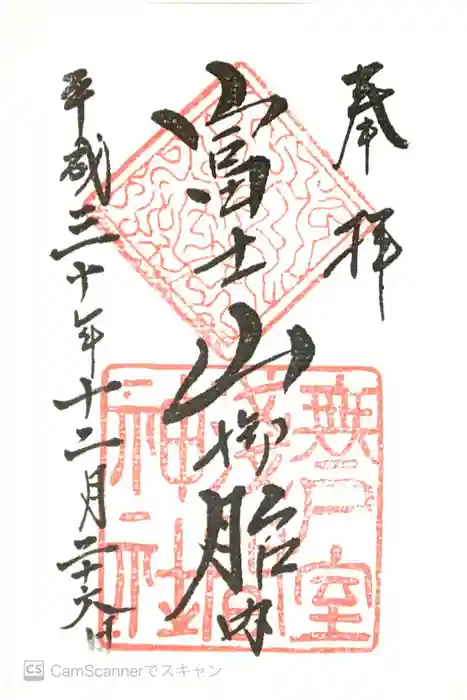 奉拝
富士山御胎内
平成三十年十二月二十六日
無戸室
淺間
神社
CS CamScannerでスキャン